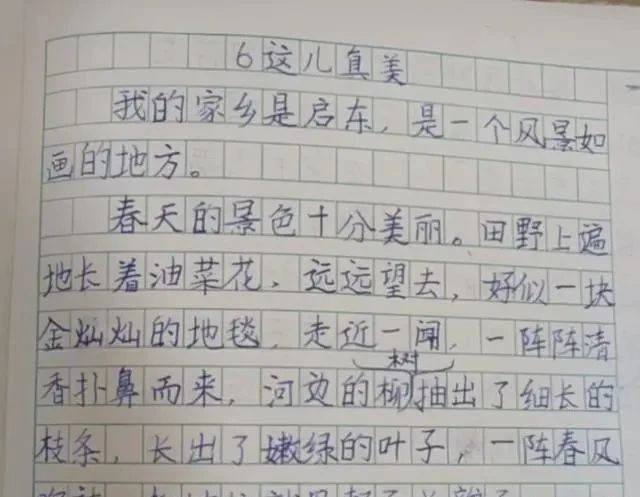 6这儿真美
我的家乡是启东，是一个风景如
画的地方。
春天的景色十分美丽。田野上遍
地长着油菜花，远远望去，好似一块
金灿灿的地毯，走近一闻，一阵阵清
树
香扑鼻而来，河边的柳抽出了细长的
枝条，长出了嫩绿的叶子，一阵春风